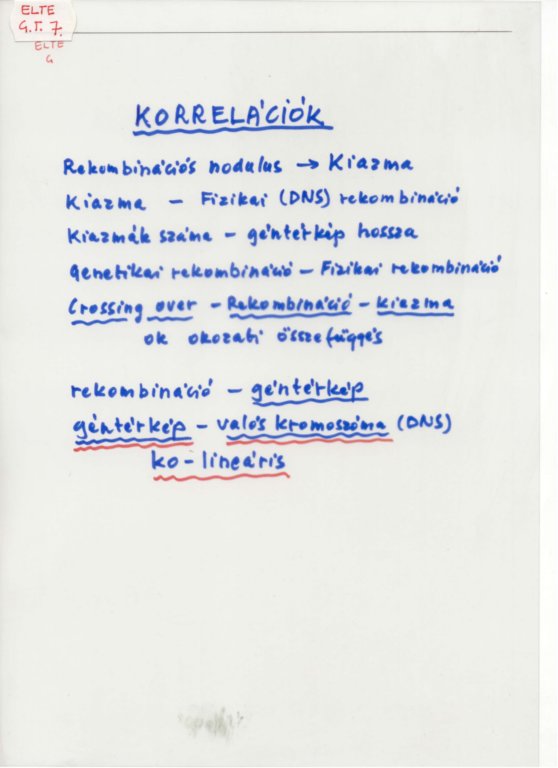 ELTE
G.T. 7.
ELTE
G
KORRELÁCIÓK
Rekombinációs nodulus → Kiazma
Kiazma – Fizikai (DNS) rekombináció
Kiazmák száma – géntérkép hossza
Genetikai rekombináció – Fizikai rekombináció
Crossing over – Rekombináció – kiazma
ok okozati összefüggés
rekombináció – géntérkép
géntérkép – valós kromoszóma (DNS)
ko-lineáris